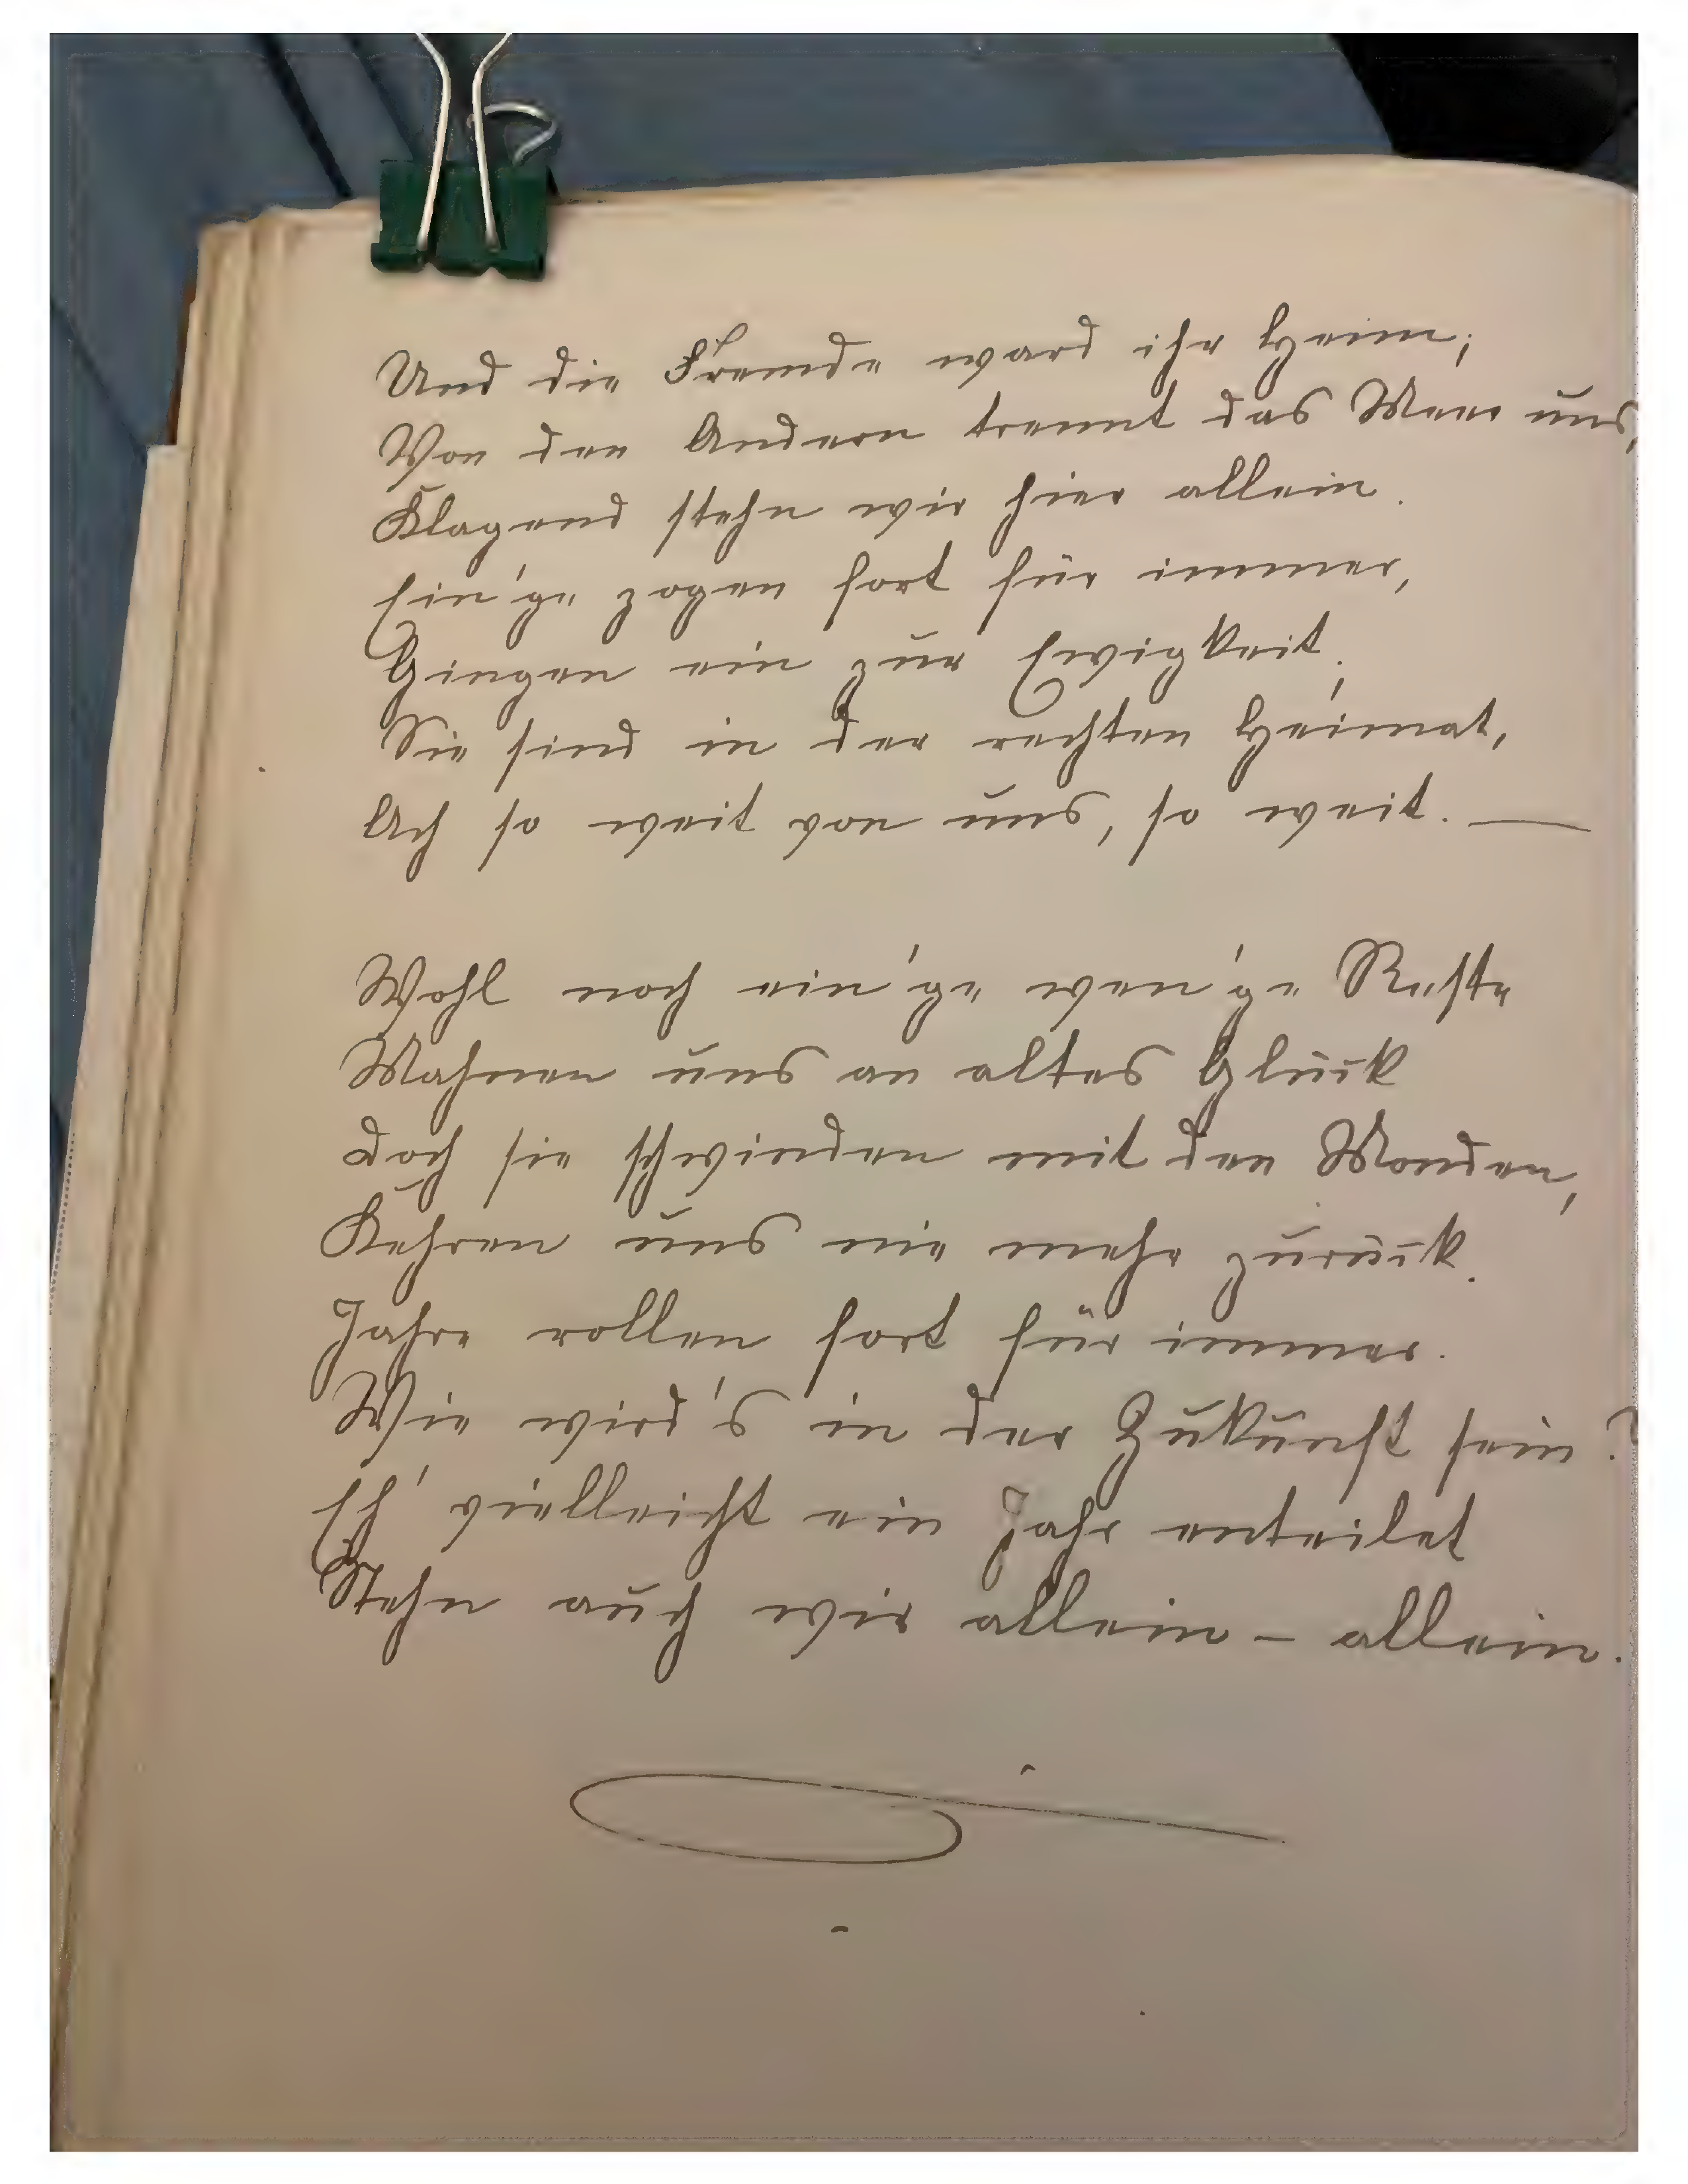 Und die Fremde ward ihr Heim;
Von den Andern trennt das Meer uns,
Klagend stehn wir hier allein.
Ein'ge zogen fort für immer,
Gingen ein zur Ewigkeit,
Sie sind in der rechten Heimat,
Ach so weit von uns, so weit. —
Wohl noch ein'ge wen'ge Reste
Mahnen uns an altes Glück
Doch sie schwinden mit den Monden,
Kehren uns nie mehr zurück.
Jahre rollen fort für immer.
Wie wird's in der Zukunft sein?
Eh' vielleicht ein Jahr enteilet
Stehn auch wir allein – allein.